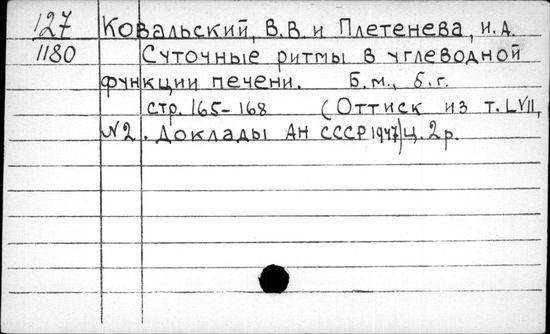 127 Ковальский, В.В. и Плетенева, И.А.
1180 Суточные ритмы в углеводной
функции печени. Б.м., б.г.
стр. 165-168 (Оттиск из т. LVII,
N2. Доклады АН СССР 1947) Ц. 2р.